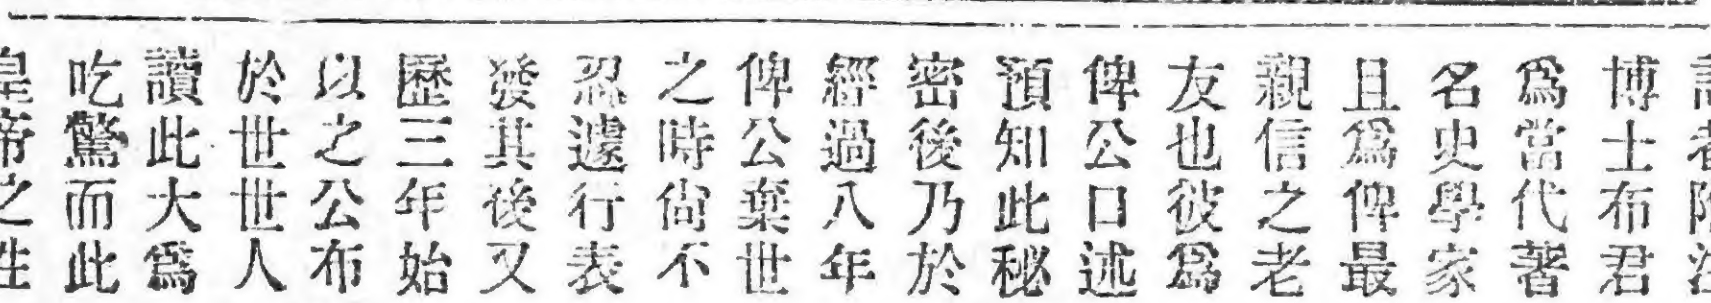 博士布君
爲當代著
名史學家
且爲俾最
親信之老
友也彼爲
俾公口述
預知此秘
密後乃於
經過八年
俾公棄世
之時尙不
忍遽行表
發其後又
歷三年始
以之公布
於世世人
讀此大爲
吃驚而此
皇帝之性